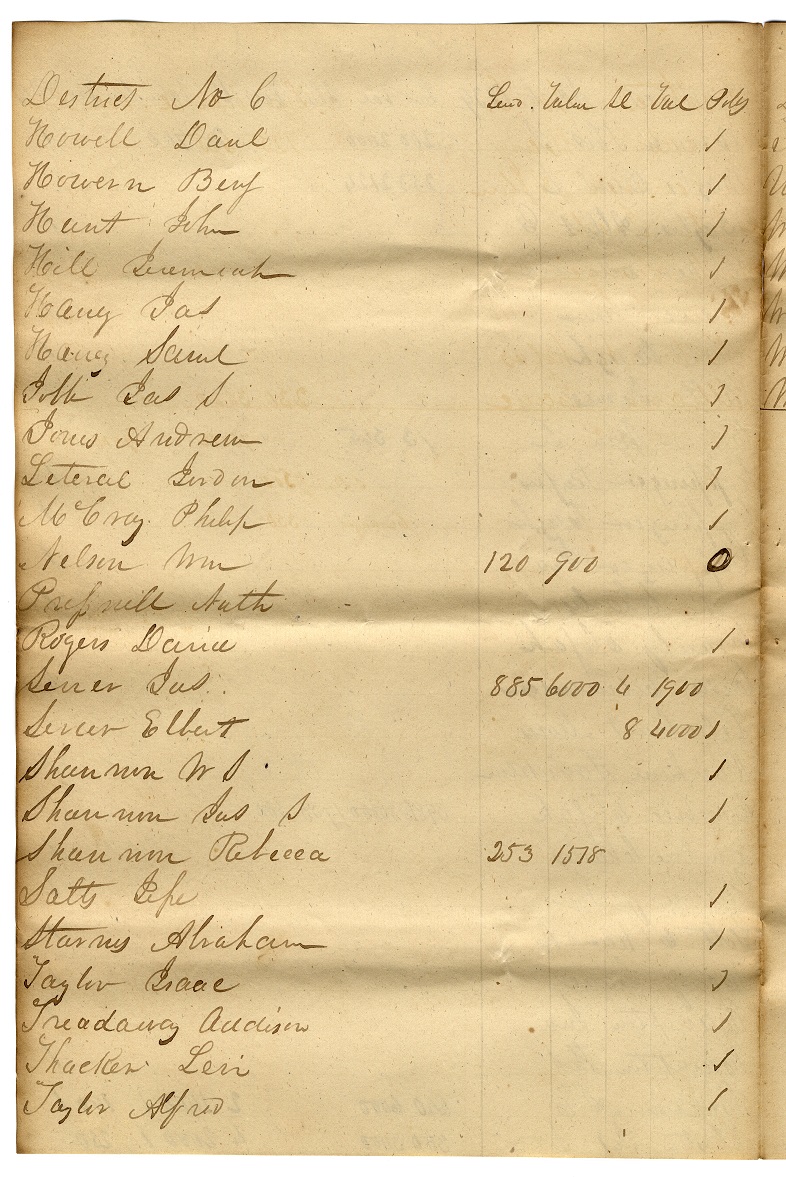 District No 6 Land. Value Sl Val Polls
Howell Danl 1
Howern Benj 1
Hunt John 1
Hill Jeremiah 1
Haney Jas 1
Haney Saml 1
Jobe Jas S 1
Jones Andrew 1
Leteral Jordon 1
McCray Philip 1
Nelson Wm 120 900 0
Presnell Nath
Rogers David 1
Sevier Jas. 885 6000 4 1900
Sevier Elbert 8 4000 1
Shannon W S. 1
Shannon Jas S 1
Shannon Rebecca 253 1518
Salts Jesse 1
Starnes Abraham 1
Taylor Isaac 1
Treadaway Addison 1
Thacker Levi 1
Taylor Alfred 1